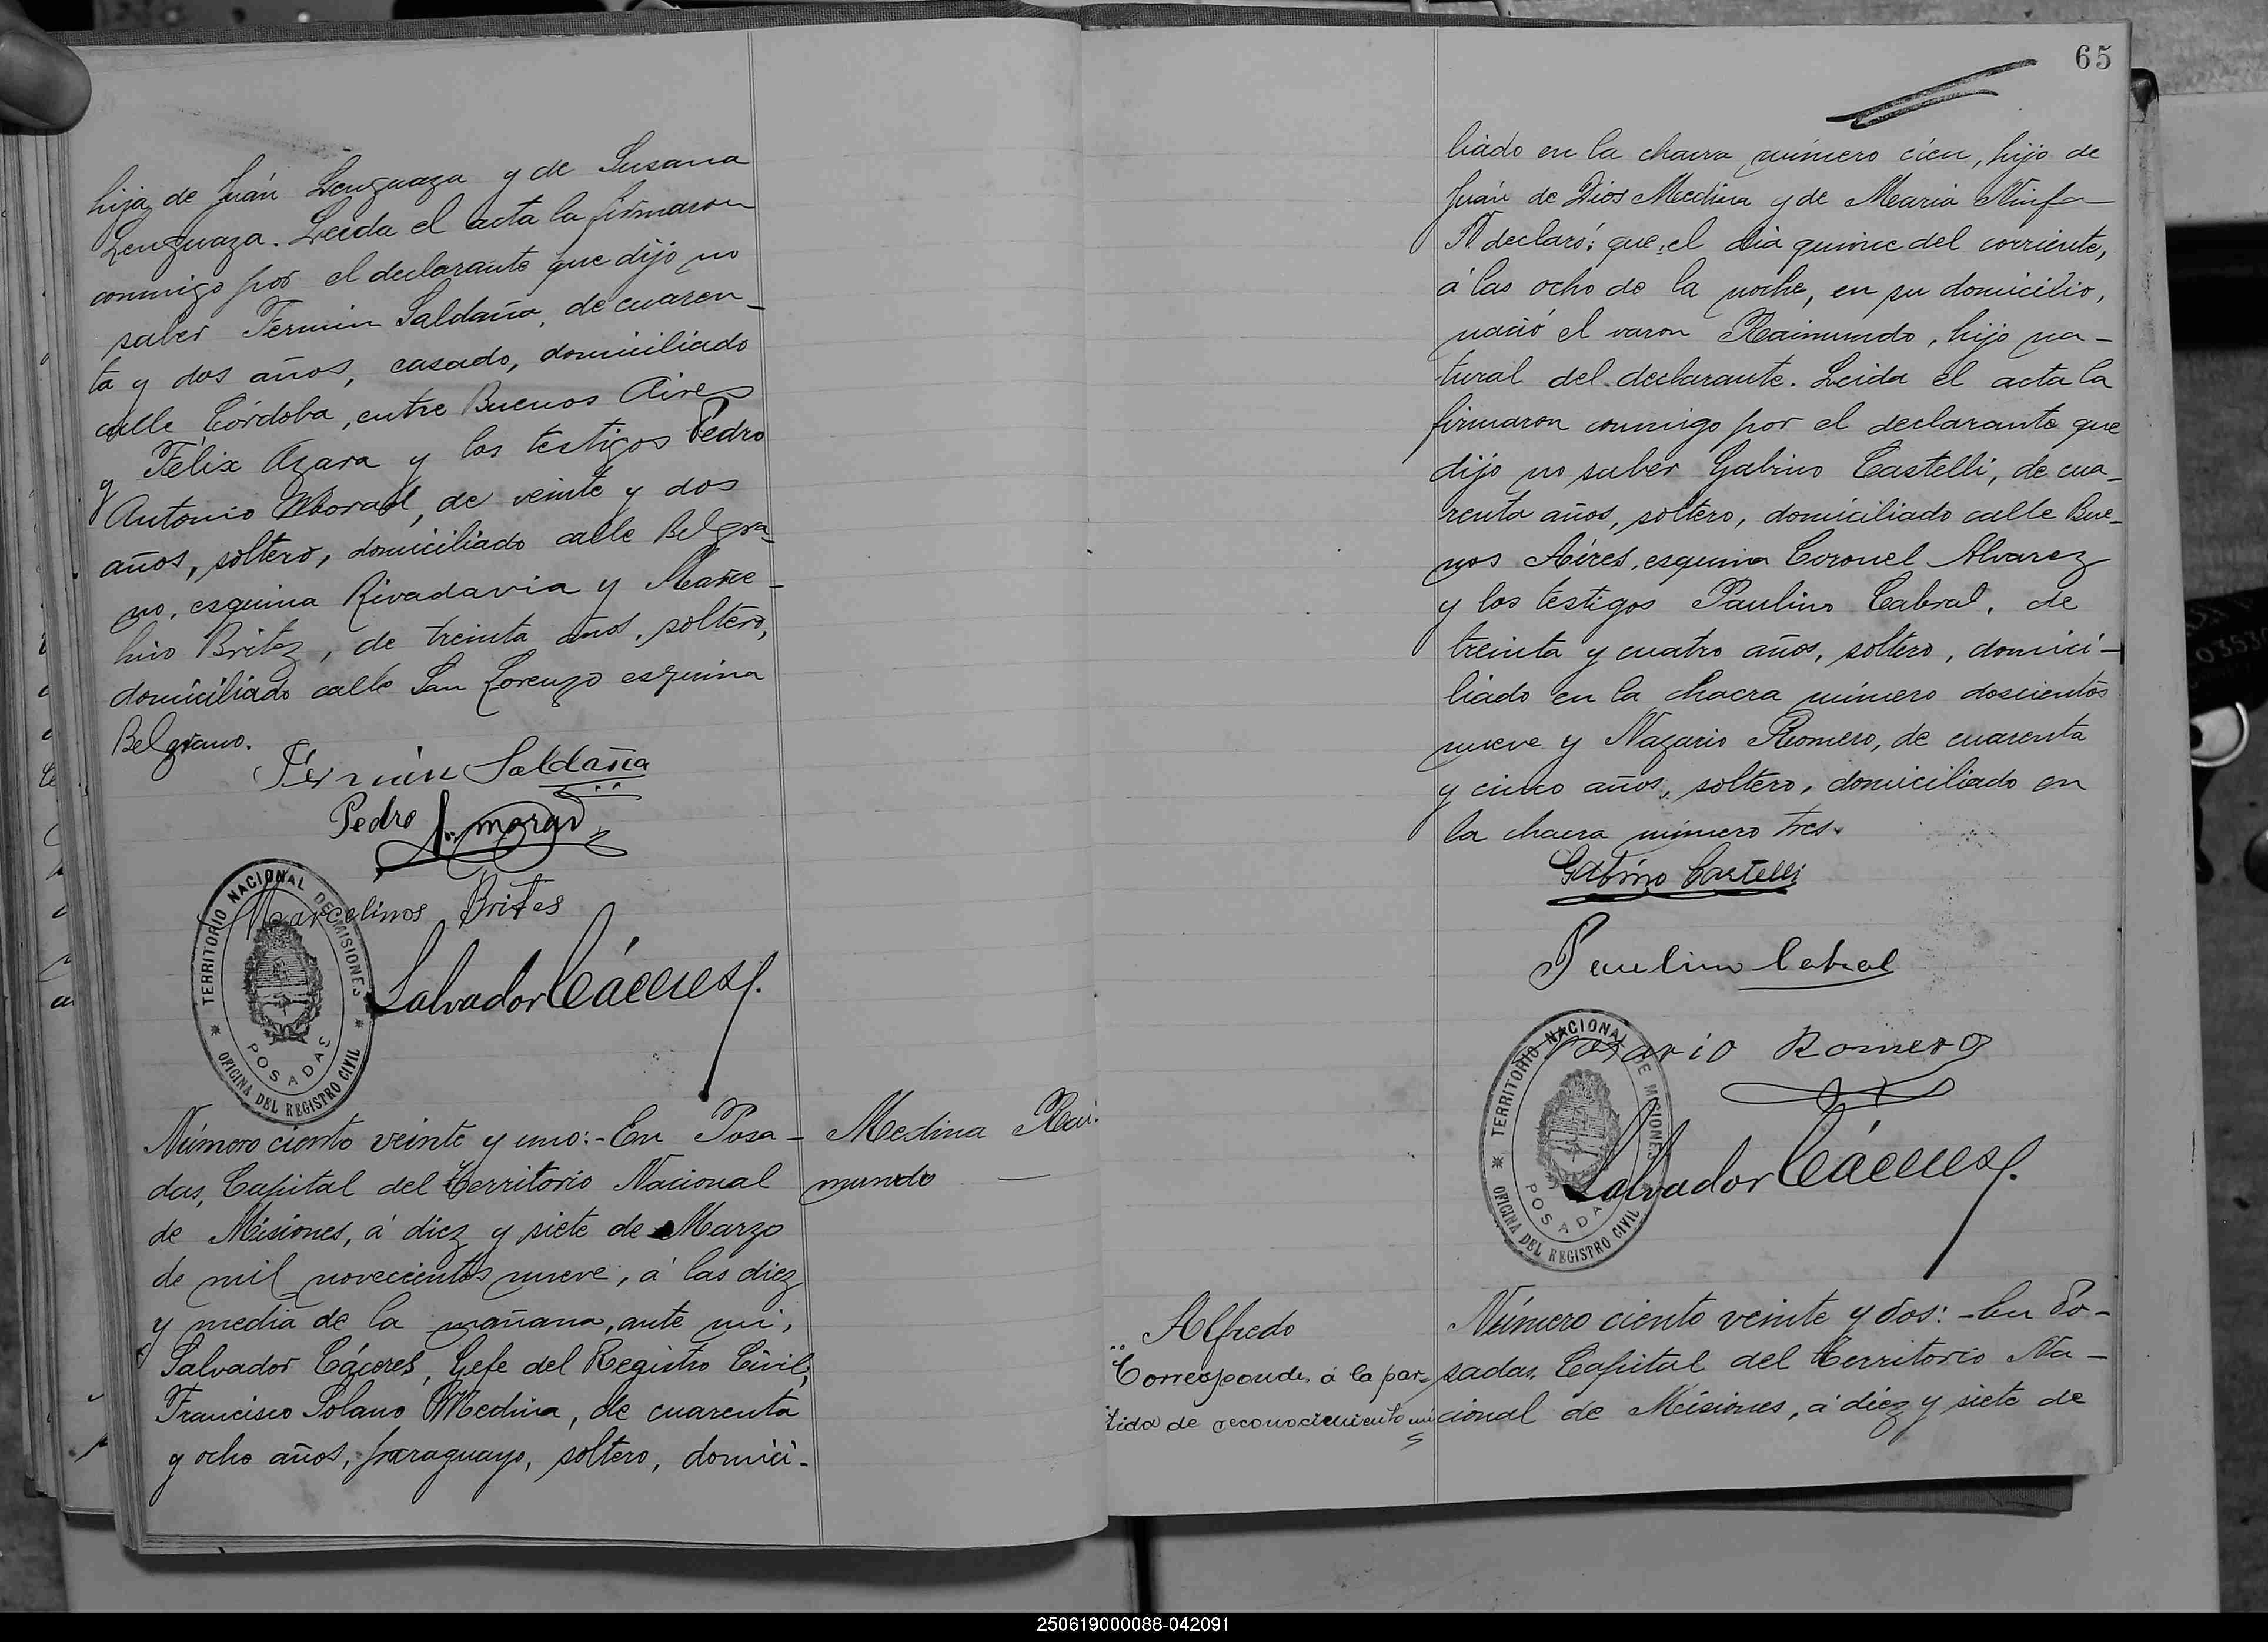 hija de Juán Lenguaza y de Susana
Lenguaza. Leida el acta la firmaron
conmigo por el declarante que dijo no
saber Fermin Saldaña, de cuaren-
ta y dos años, casado, domiciliado
calle Córdoba, entre Buenos Aires
y Félix Azara y los testigos Pedro
Antonio Moral, de veinte y dos
años, soltero, domiciliado calle Belgra-
no, esquina Rivadavia y Marce-
lino Britez, de treinta años, soltero,
domiciliado calle San Lorenzo esquina
Belgrano.
Fermín Saldaña
Pedro A. moral
Marcelinos Brites
Salvador Cáceres
TERRITORIO NACIONAL DE MISIONES
POSADAS
OFICINA DEL REGISTRO CIVIL
Número ciento veinte y uno:- En Posa-
das, Capital del Territorio Nacional
de Misiones, á diez y siete de Marzo
de mil novecientos nueve, á las diez
y media de la mañana, ante mi,
Salvador Cáceres, Gefe del Registro Civil,
Francisco Solano Medina, de cuarenta
y ocho años, paraguayo, soltero, domici-
Medina Rai-
mundo
65
liado en la chacra número cien, hijo de
Juán de Dios Medina y de Maria Ninfa
N declaró: que el dia quince del corriente,
á las ocho de la noche, en su domicilio,
nació el varon Raimundo, hijo na-
tural del declarante. Leida el acta la
firmaron conmigo por el declarante que
dijo no saber Gabino Castelli, de cua-
renta años, soltero, domiciliado calle Bue-
nos Aires, esquina Coronel Alvarez
y los testigos Paulino Cabral, de
treinta y cuatro años, soltero, domici-
liado en la chacra número doscientos
nueve y Nazario Romero, de cuarenta
y cinco años, soltero, domiciliado en
la chacra número tres.
Gabino Castelli
Paulino Cabral
Nazario Romero
Salvador Cáceres
TERRITORIO NACIONAL DE MISIONES
POSADAS
OFICINA DEL REGISTRO CIVIL
.. Alfredo
Corresponde á la par-
tida de reconocimiento nú
Número ciento veinte y dos: - En Po-
sadas, Capital del Territorio Na-
cional de Misiones, á diez y siete de
250619000088-042091